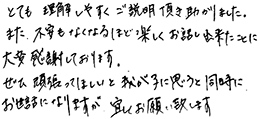 とても 理解しやすく ご説明 頂き助かりました。
また、不安もなくなるほど楽しくお話し出来たことに
大変 感謝しております。
ぜひ 頑張ってほしいと 我が子に思うと 同時に
お世話になりますが 宜しくお願い致します